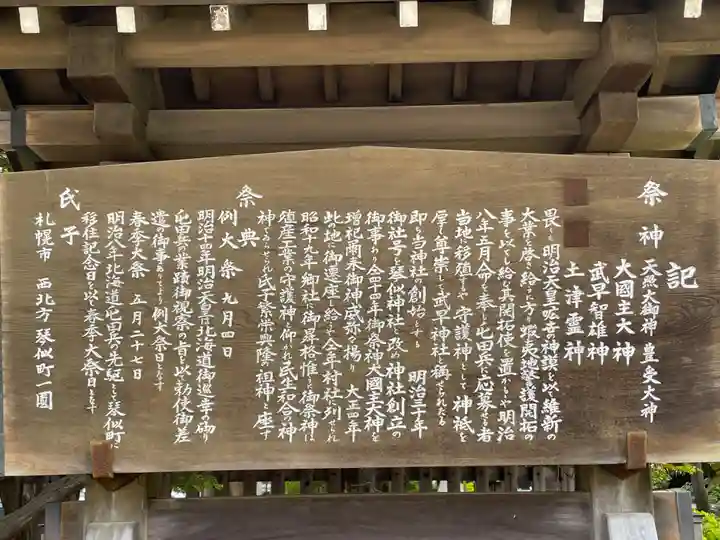 記
祭神 天照大御神 豊受大神
大國主大神
武早智雄神
土津霊神
畏くも明治天皇宏謨を以て維新の
大業を啓き給ふに方り蝦夷地警護開拓の
事を以てし給ひ其開拓使を置かしや明治
八年五月命を奉じ屯田兵に応募せる者
当地に移殖するや守護神として神祇を
厚く尊崇して武早神社と稱せられたる
即ち当神社の創始とす 明治三十年
御社号を琴似神社と改め神社創立の
御事あり仝四十四年御祭神大國主大神を
増祀爾来御神威弥々揚り 大正四年
此の地に御遷座し給ふ 仝年村社に列せられ
昭和十九年郷社に御昇格惟ふに御祭神は
殖産工業の守護神と仰がれ民生和合の神
神であらせられ氏子繁栄興隆の祖神と座す
祭典
例大祭 九月四日
明治十四年明治天皇北海道御巡幸の砌り
屯田兵の業蹟御視察の旨を以て勅使御差
遣の御事ありてより例大祭日となす
春季大祭 五月二十七日
明治八年北海道屯田兵の先駆として琴似町に
移住記念日を以て春季大祭日となす
氏子
札幌市 西北方 琴似町一圓